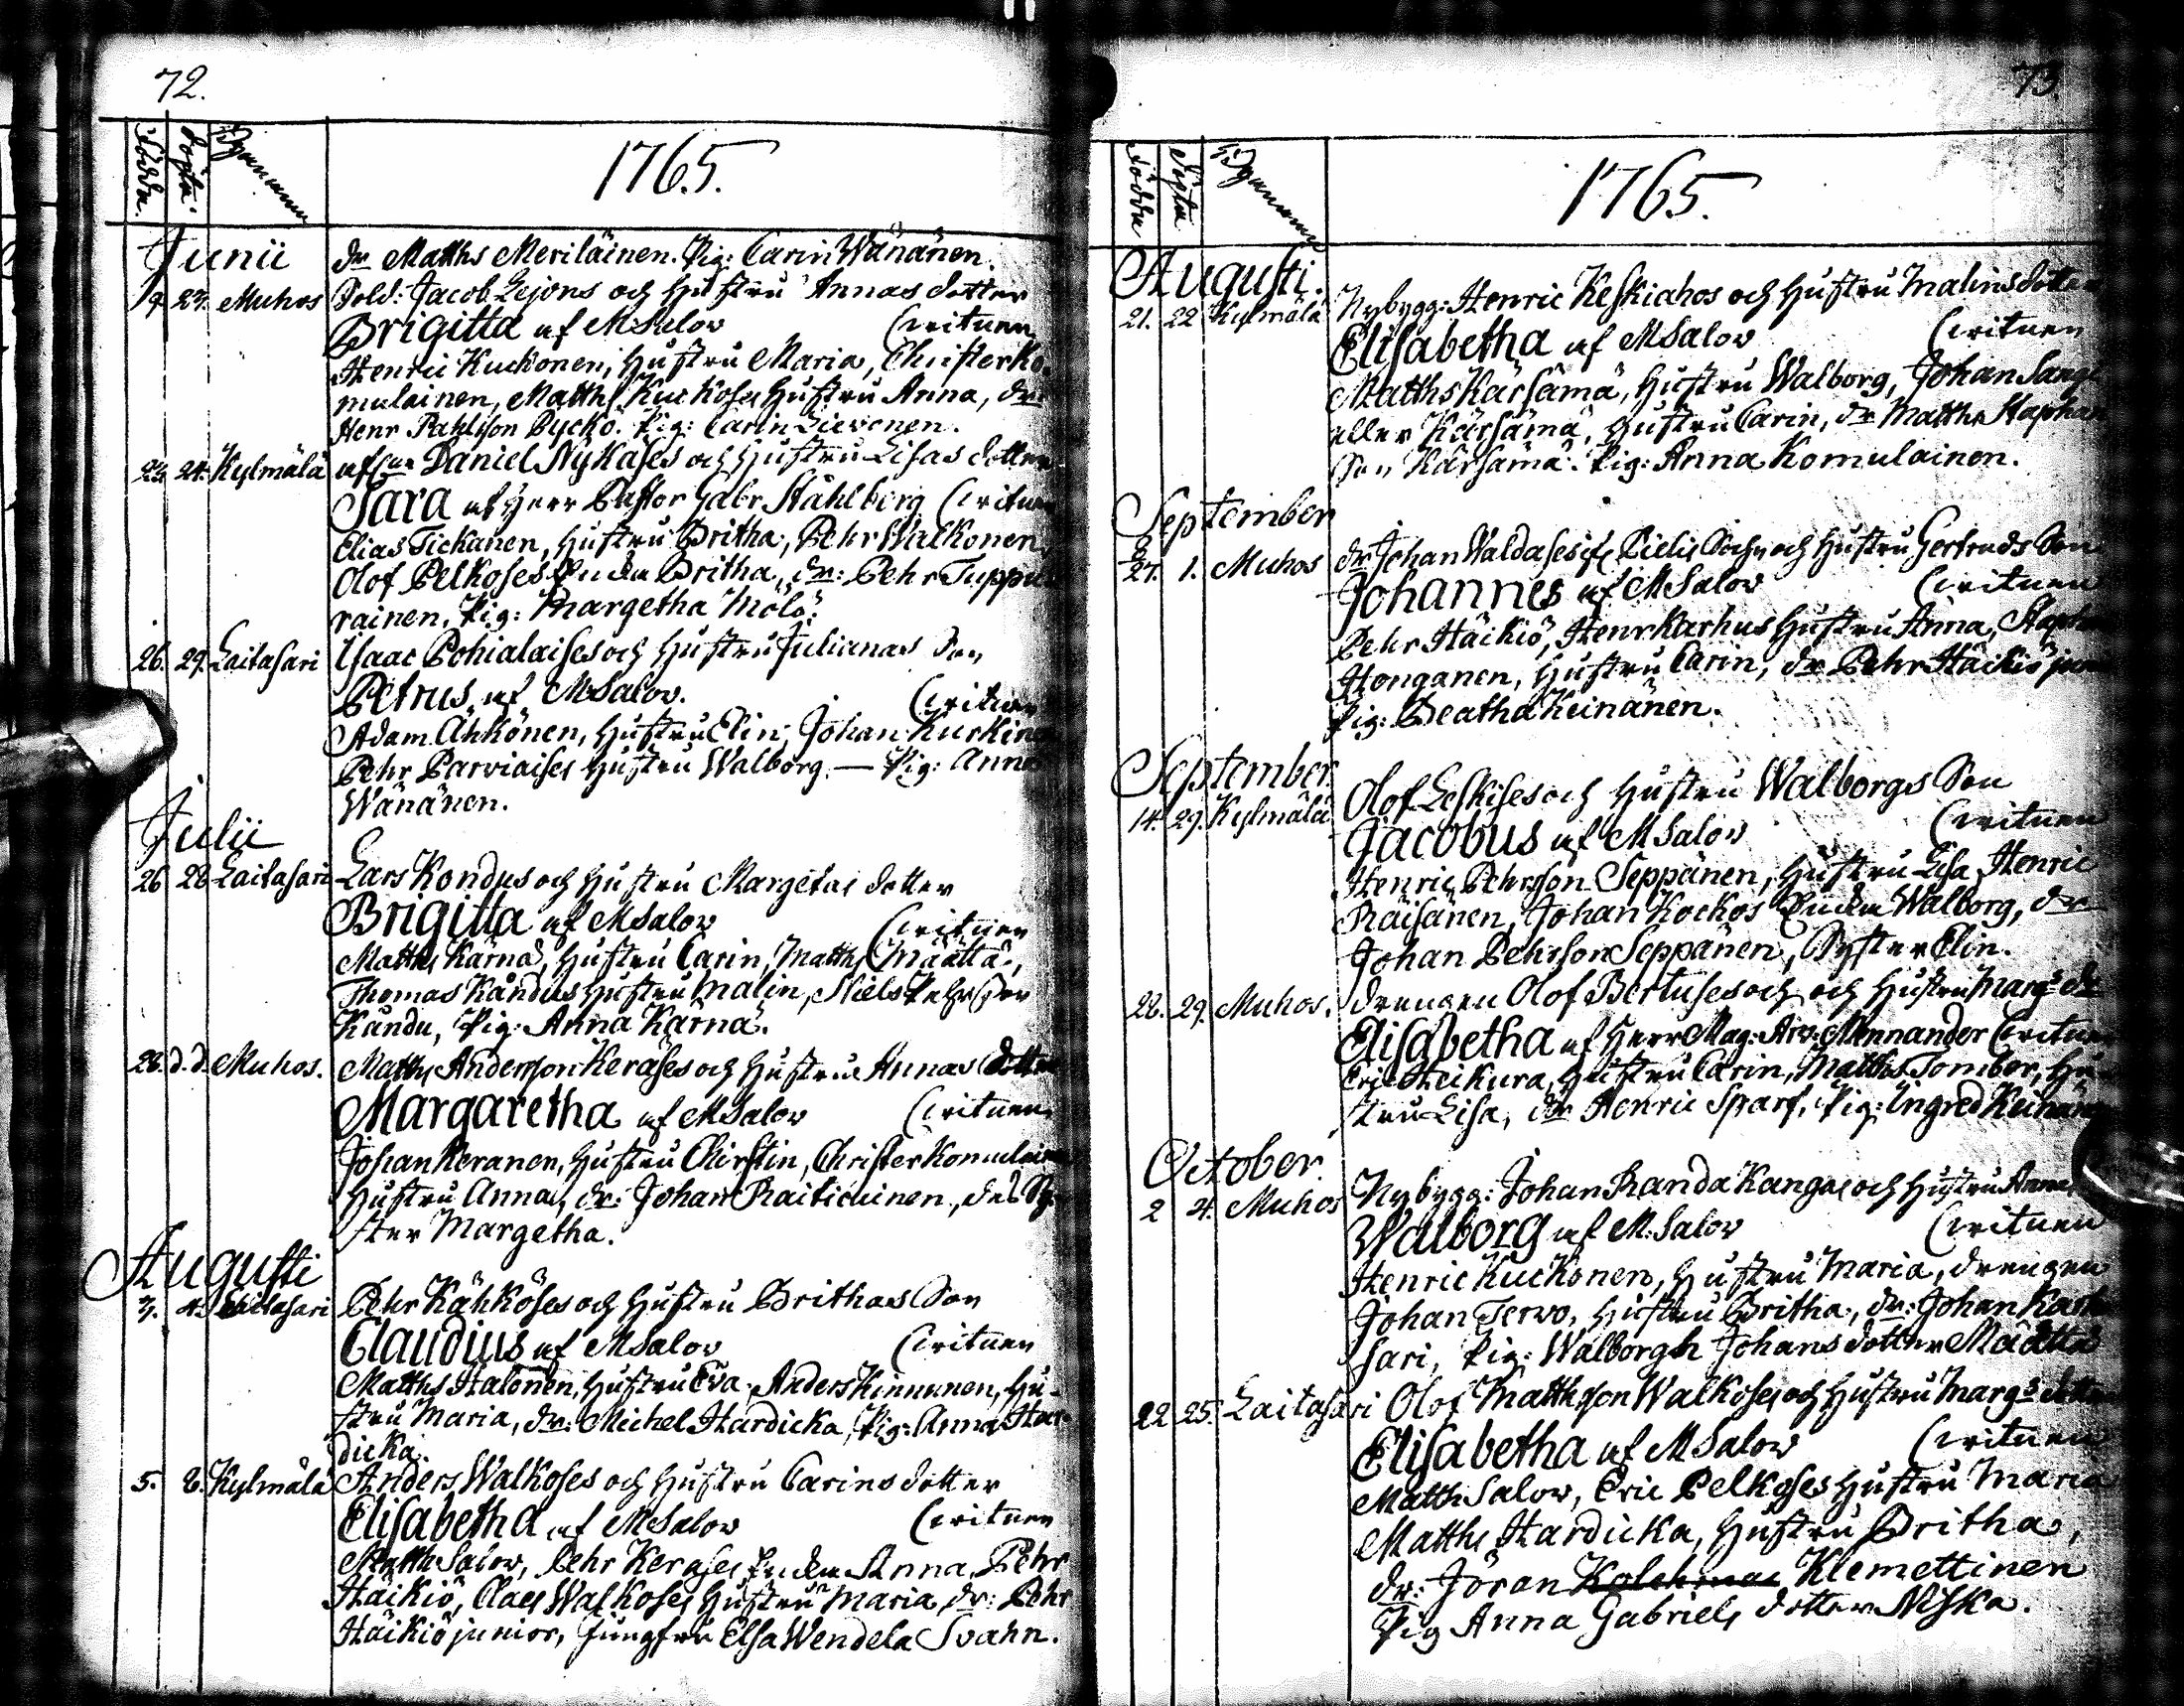 72.
Födde. Döpte. Hemman
1765.
Junii
dr Matths Meriläinen. Pig: Carin Wänänen.
9 23. Muhos Sold: Jacob Lejons och Hustru Annas dotter
Brigitta af MSalov (Crituren
Henric Kuckonen, Hustru Maria, Christer Ko-
mulainen, Matths Kuckoses Hustru Anna, dr:
Henr Pahlson Pyckö. Pig: Carin Sievonen.
23 24. Kylmälä Daniel Nykäses och Hustru Lisas dotter
Sara af Herr Pastor Gabr Ståhlberg (Crituren
Elias Tickanen, Hustru Britha, Pehr Walkonen,
Olof Pelkoses Enkia Britha, dr: Pehr Tuppu-
rainen, Pig: Margetha Mölö.
26. 29. Laitasari Isaac Pohialaises och Hustru Julianas Son
Petrus af MSalov. (Crituren
Adam Ahkönen, Hustru Elin, Johan Kurkinen
Pehr Parviaises Hustru Walborg. — Pig: Anna
Wänänen.
Julii
26 28 Laitasari Lars Kondus och Hustru Margetas dotter
Brigitta af MSalov (Crituren
Matths Kärnä, Hustru Carin, Matths Määttä,
Thomas Kåndus Hustru Malin, Niels Pehrson
Kåndu, Pig: Anna Kärnä.
28. d.d. Muhos. Matths Andersson Keräses och Hustru Annas Dotter
Margaretha af MSalov (Crituren
Johan Keranen, Hustru Chirstin, Christer Komulainen
Hustru Anna, dr: Johan Raitichinen, des Sy-
ster Margetha.
Augusti
3. 4. Laitasari Pehr Kähköses och Hustru Brithas Son
Claudius af MSalov (Crituren
Matths Halonen, Hustru Eva, Anders Kinnunen, Hu-
stru Maria, dr: Michel Hardicka, Pig: Anna Har-
dicka.
5. 8. Kylmälä Anders Walkoses och Hustru Carins dotter
Elisabetha af MSalov (Crituren
Matths Salov, Pehr Keräses Enkia Anna, Pehr
Häikiö, Claes Walkoses Hustru Maria, dr: Pehr
Häikiö junior, Jungfru Elsa Wendela Svahn.
73.
Födde Döpte Hemman
1765.
Augusti.
21. 22 Kylmälä Nybygg: Henric Keskiahos och Hustru Malins dotter
Elisabetha af MSalov (Crituren
Matths Kärsämä, Hustru Walborg, Johan Sangi
eller Kärsämä, Hustru Carin, dr Matths Staphan
Son Kärsämä. Pig: Anna Komulainen.
September
27. 1. Muhos dr Johan Waldases och Hustru Gertruds Son
Johannes af MSalov (Crituren
Pehr Häikiö, Henr Karhus Hustru Anna, Staphan
Honganen, Hustru Carin, dr Pehr Häikiö jun
Pig: Beatha Keinänen.
September
14. 29. Kylmälä Olof Leskises och Hustru Walborgs Son
Jacobus af MSalov (Crituren
Henric Pehrsson Seppänen, Hustru Lisa, Henric
Räisänen, Johan Kockos Enkia Walborg, dr
Johan Pehrsson Seppänen, Syster Elin.
22. 29. Muhos. drengen Olof Bertuses och och Hustru Margs dr
Elisabetha af Herr Mag: Arv: Mennander Crituren
Eric Heikura, Hustru Carin, Matths Tomber, Hu-
stru Lisa, dr Henric Sparf, Pig: Ingred Keinänen
October.
2 4. Muhos Nybygg: Johan Randa Kangas och Hustru Annas
Walborg af M:Salov (Crituren
Henric Kuckonen, Hustru Maria, drengen
Johan Terwo, Hustru Britha, dr: Johan Kark
sari, Pig: Walborgh Johans dotter Määttä
22 25. Laitasari Olof Mattsson Walkoses och Hustru Margs dotter
Elisabetha af MSalov (Crituren
Matth Salov, Eric Pelkoses Hustru Maria
Matths Hardicka, Hustru Britha,
dr: Jöran Kolehmai Klemettinen
Pig Anna Gabriels dotter Niska.